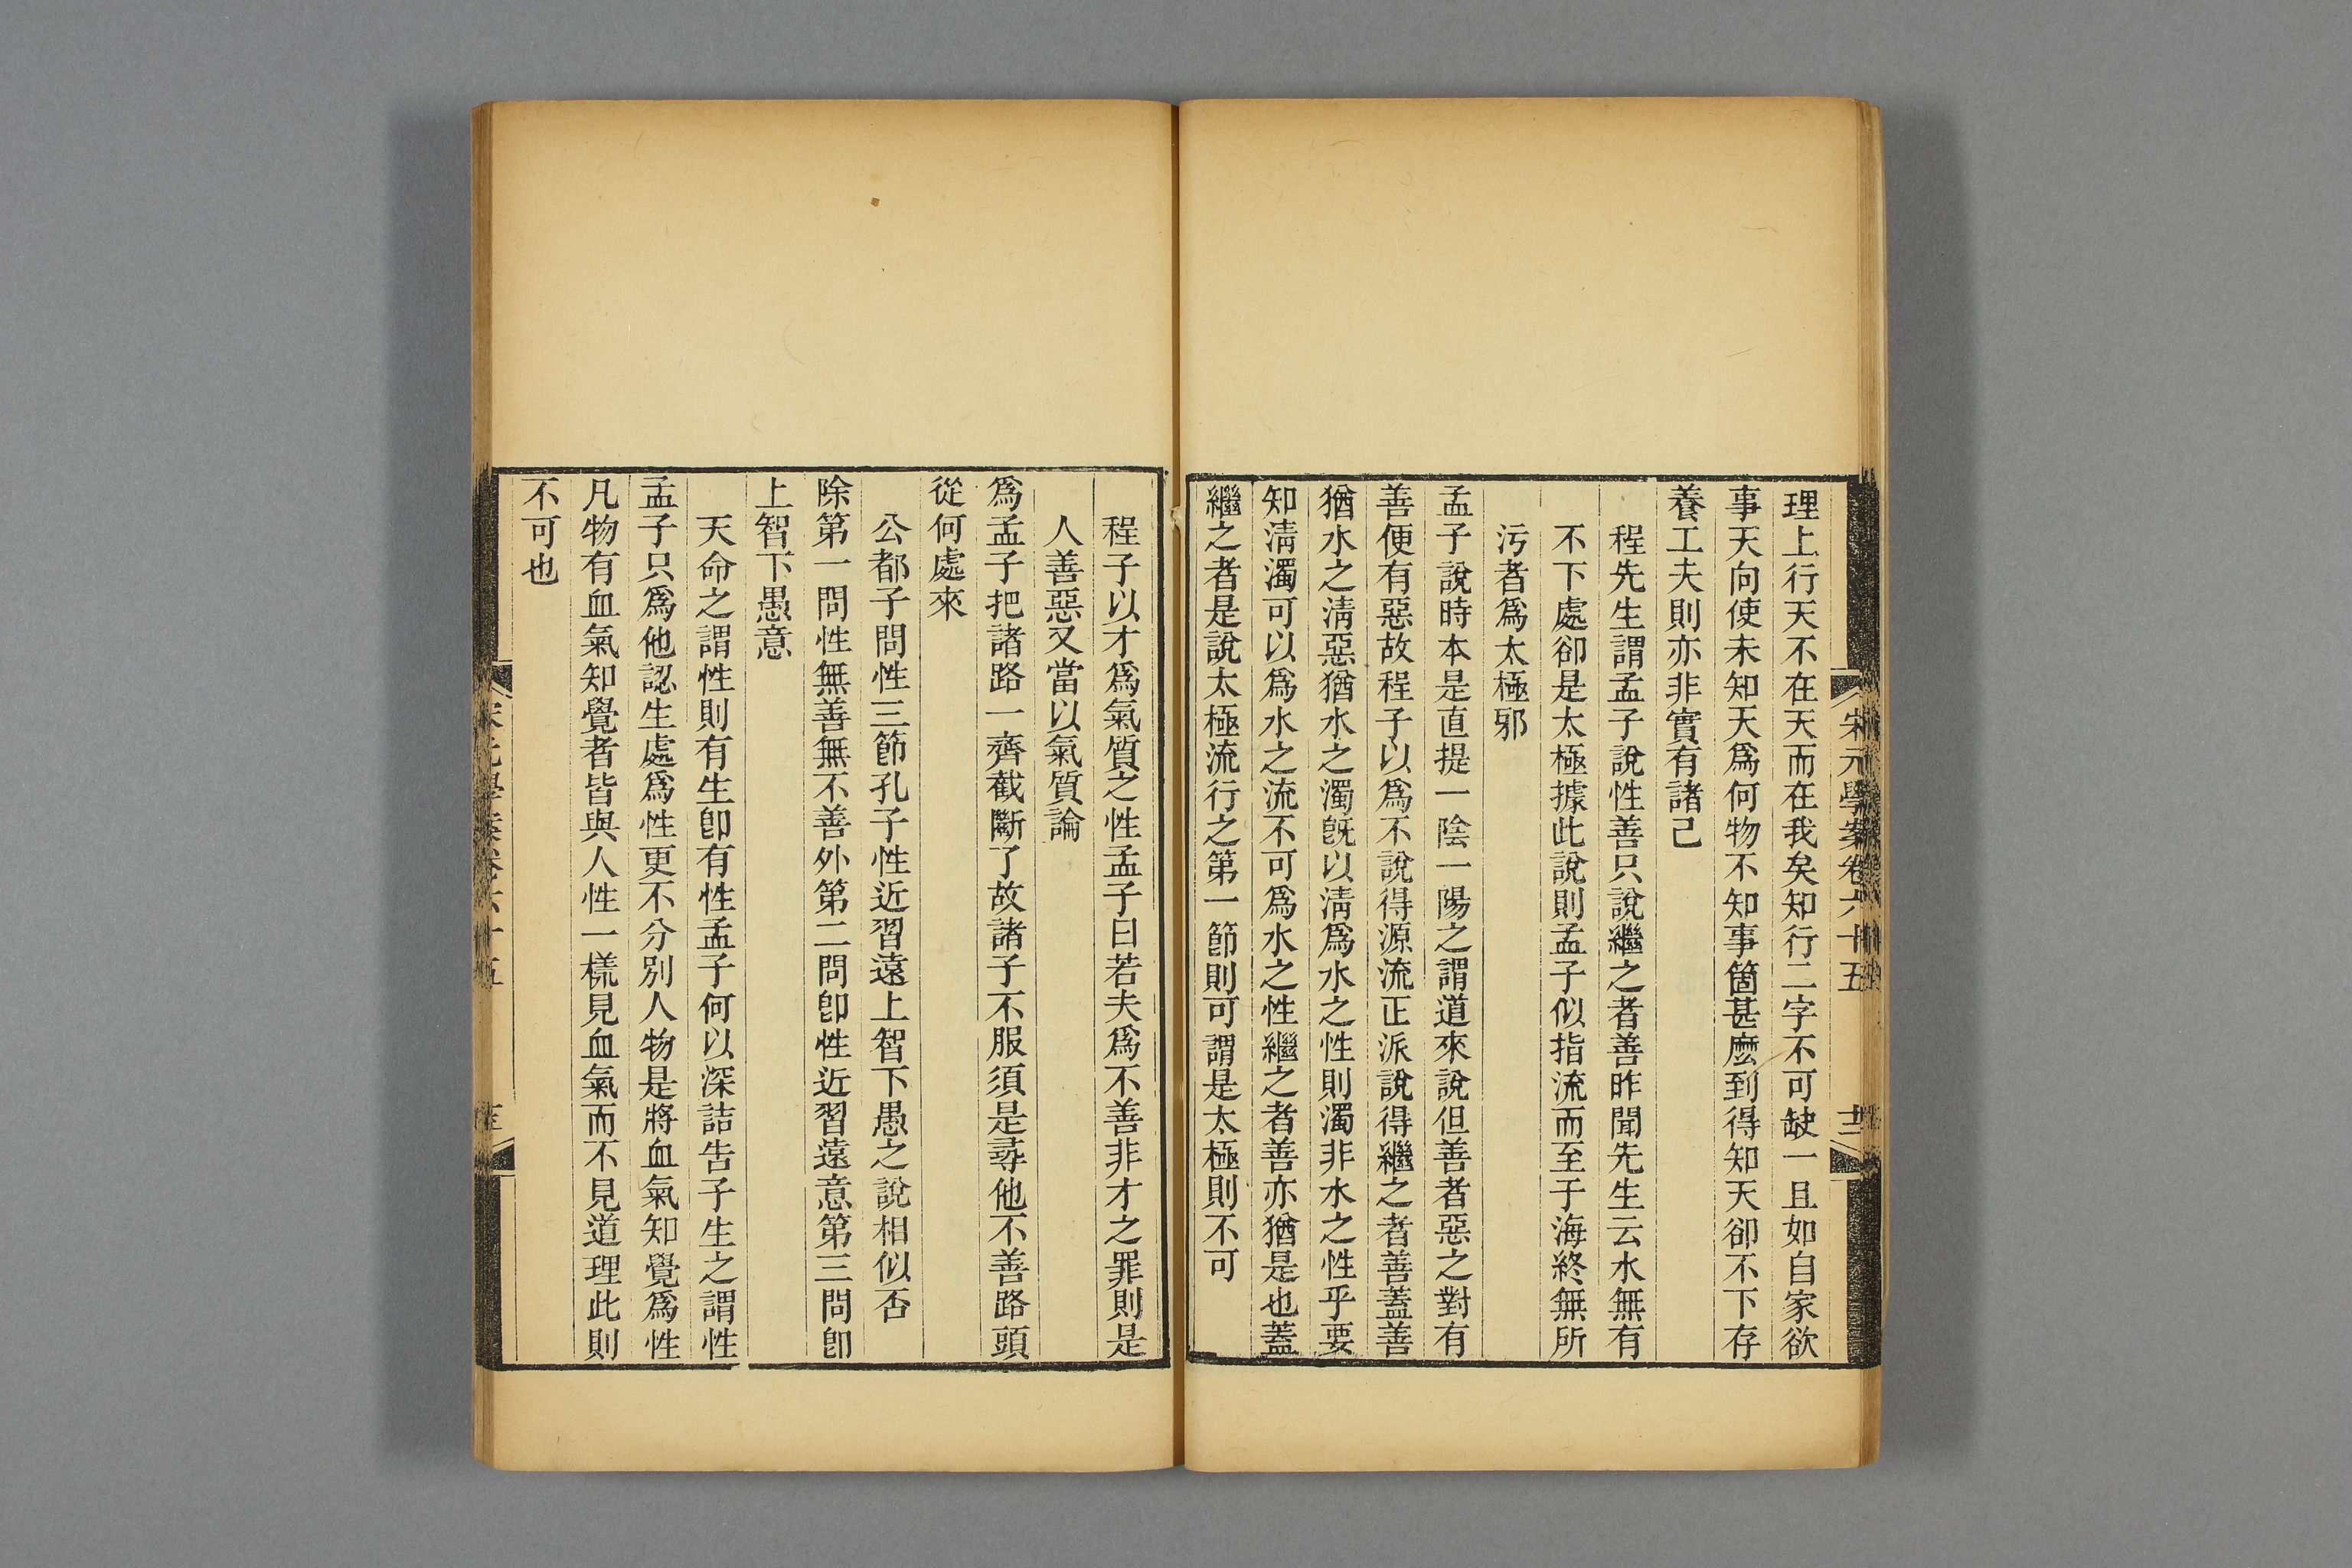 宋元學案卷六十五
理上行天不在天而在我矣知行二字不可缺一且如自家欲
事天向使未知天爲何物不知事箇甚麼到得知天卻不下存
養工夫則亦非實有諸己
程先生謂孟子說性善只說繼之者善昨聞先生云水無有
不下處卻是太極據此說則孟子似指流而至于海終無所
污者爲太極邪
孟子說時本是直提一陰一陽之謂道來說但善者惡之對有
善便有惡故程子以爲不說得源流正派說得繼之者善蓋善
猶水之淸惡猶水之濁旣以淸爲水之性則濁非水之性乎要
知淸濁可以爲水之流不可爲水之性繼之者善亦猶是也蓋
繼之者是說太極流行之第一節則可謂是太極則不可
程子以才爲氣質之性孟子曰若夫爲不善非才之罪則是
人善惡又當以氣質論
爲孟子把諸路一齊截斷了故諸子不服須是尋他不善路頭
從何處來
公都子問性三節孔子性近習遠上智下愚之說相似否
除第一問性無善無不善外第二問卽性近習遠意第三問卽
上智下愚意
天命之謂性則有生卽有性孟子何以深詰告子生之謂性
孟子只爲他認生處爲性更不分別人物是將血氣知覺爲性
凡物有血氣知覺者皆與人性一樣見血氣而不見道理此則
不可也
宋元學案卷六十五